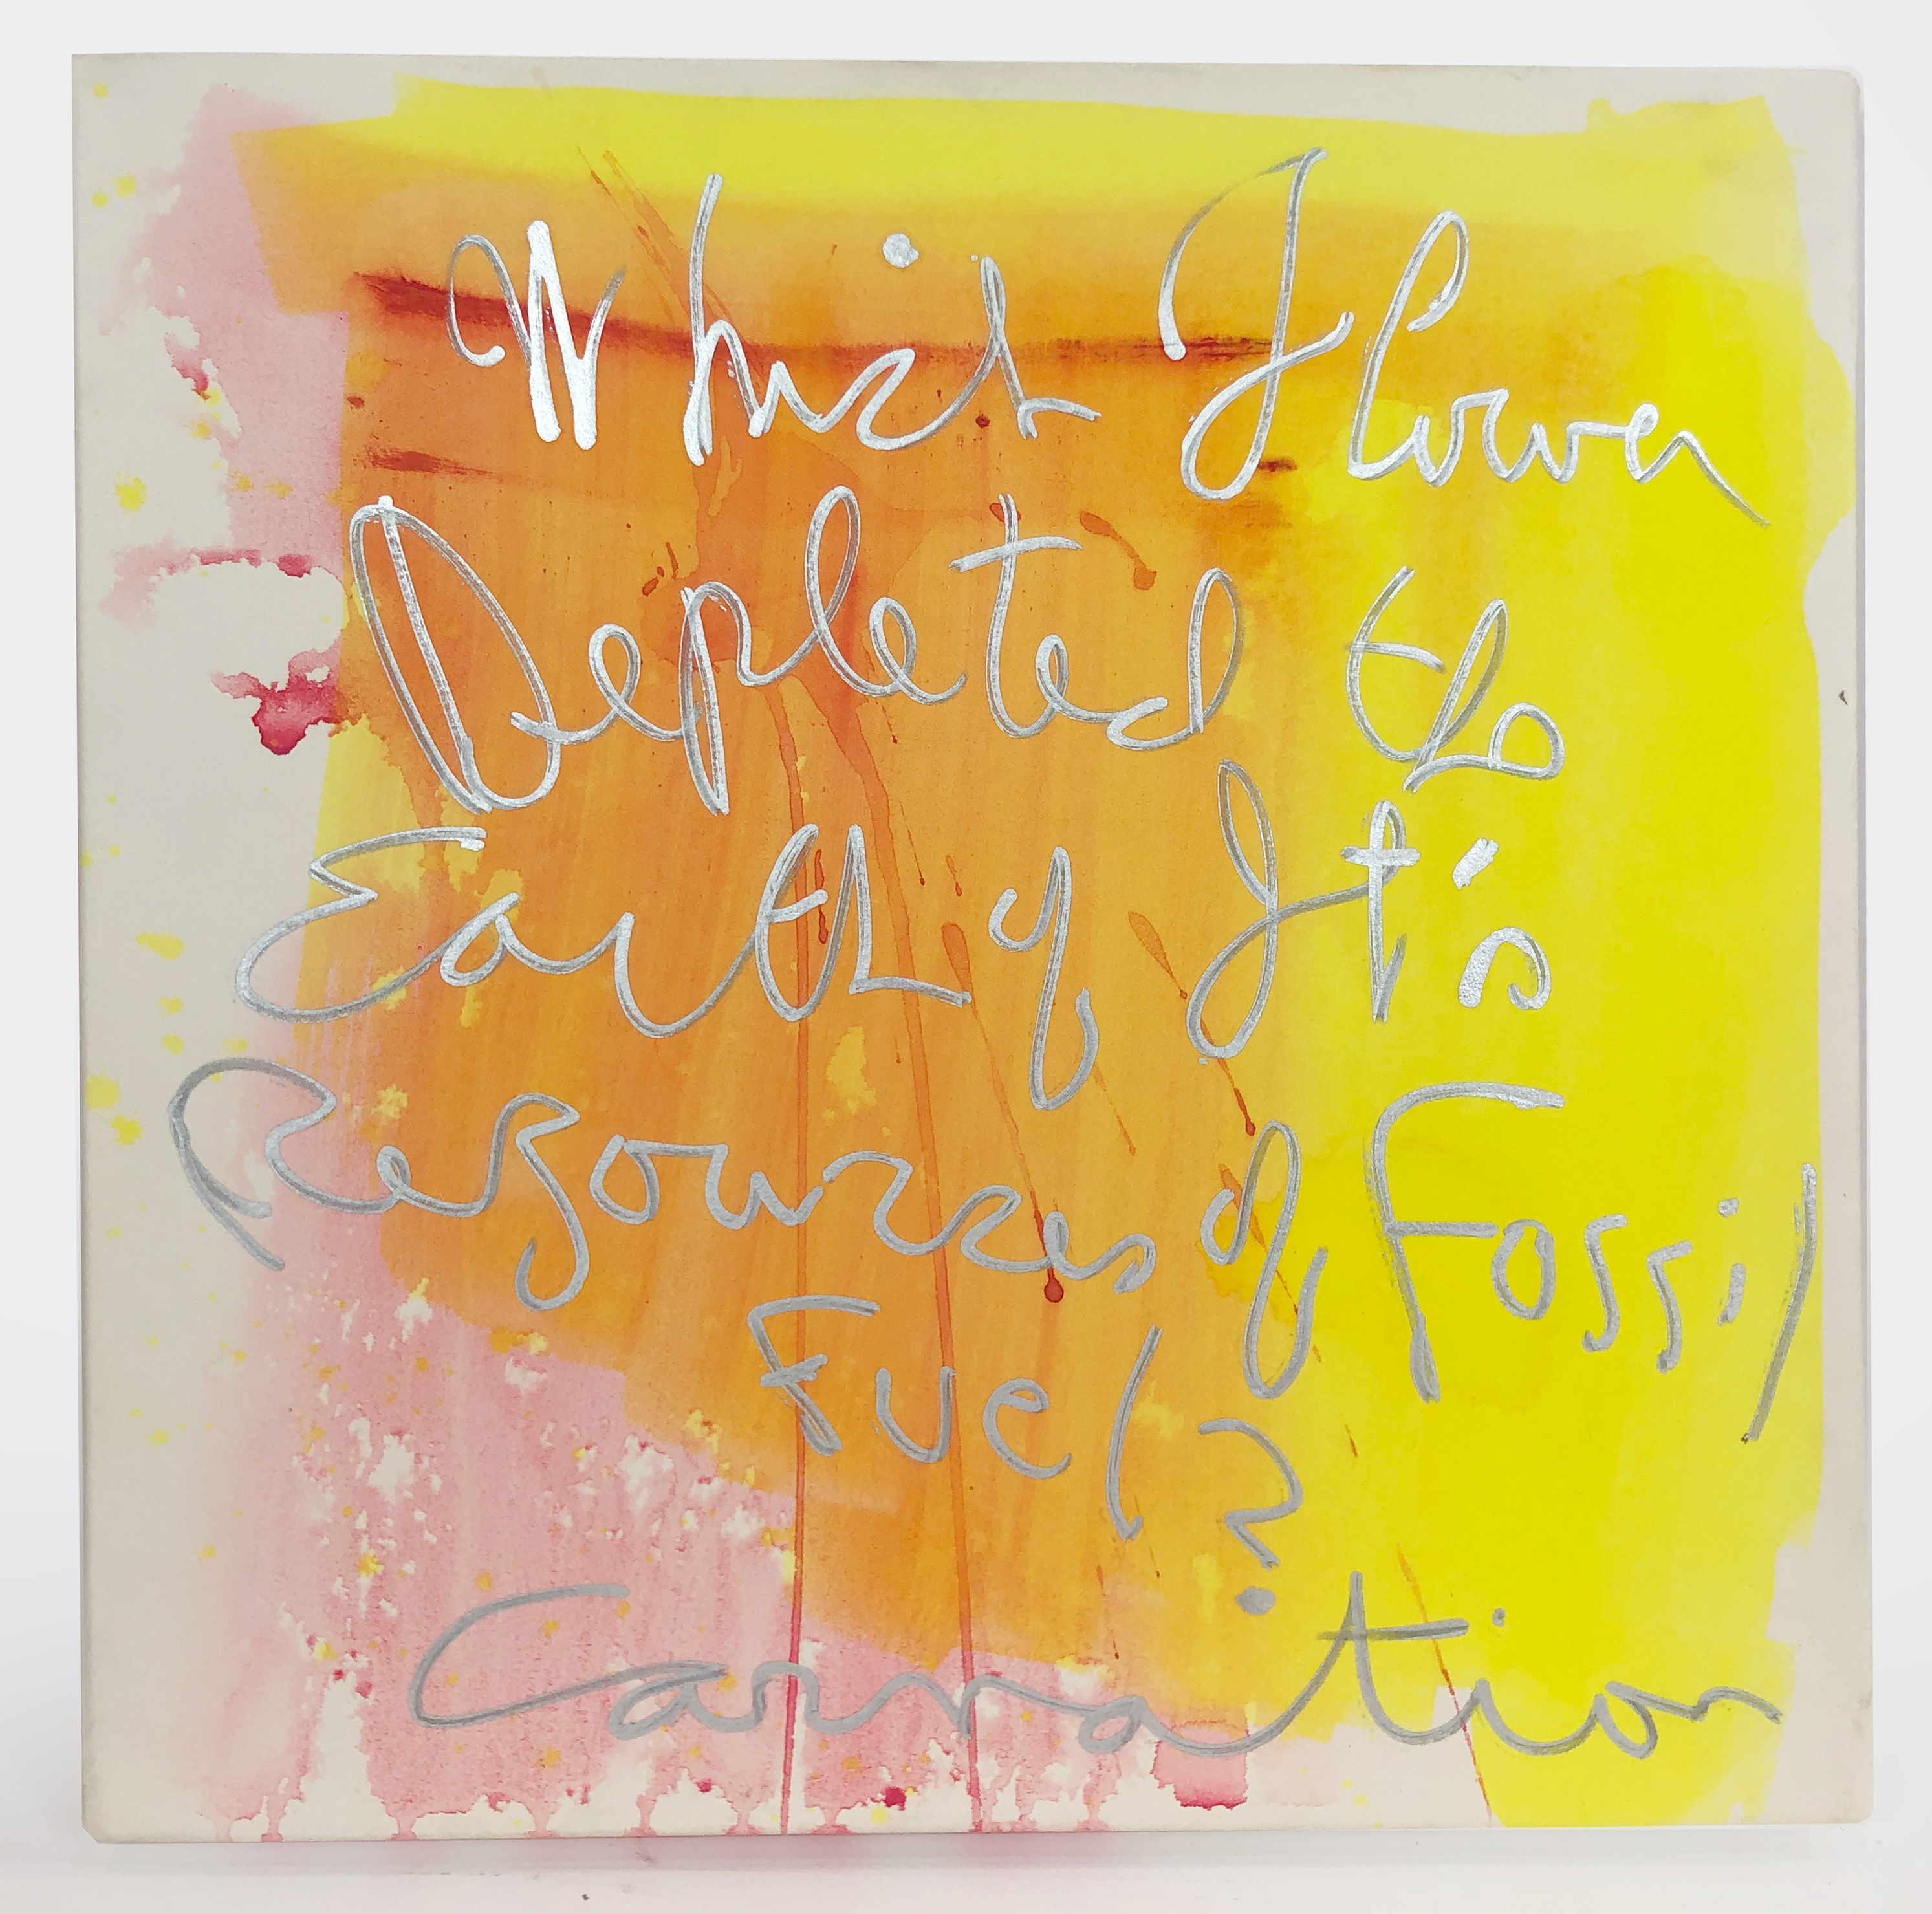 Which Flower
Depleted the
Earth of It's
Resources of Fossil
Fuel?
Carnation